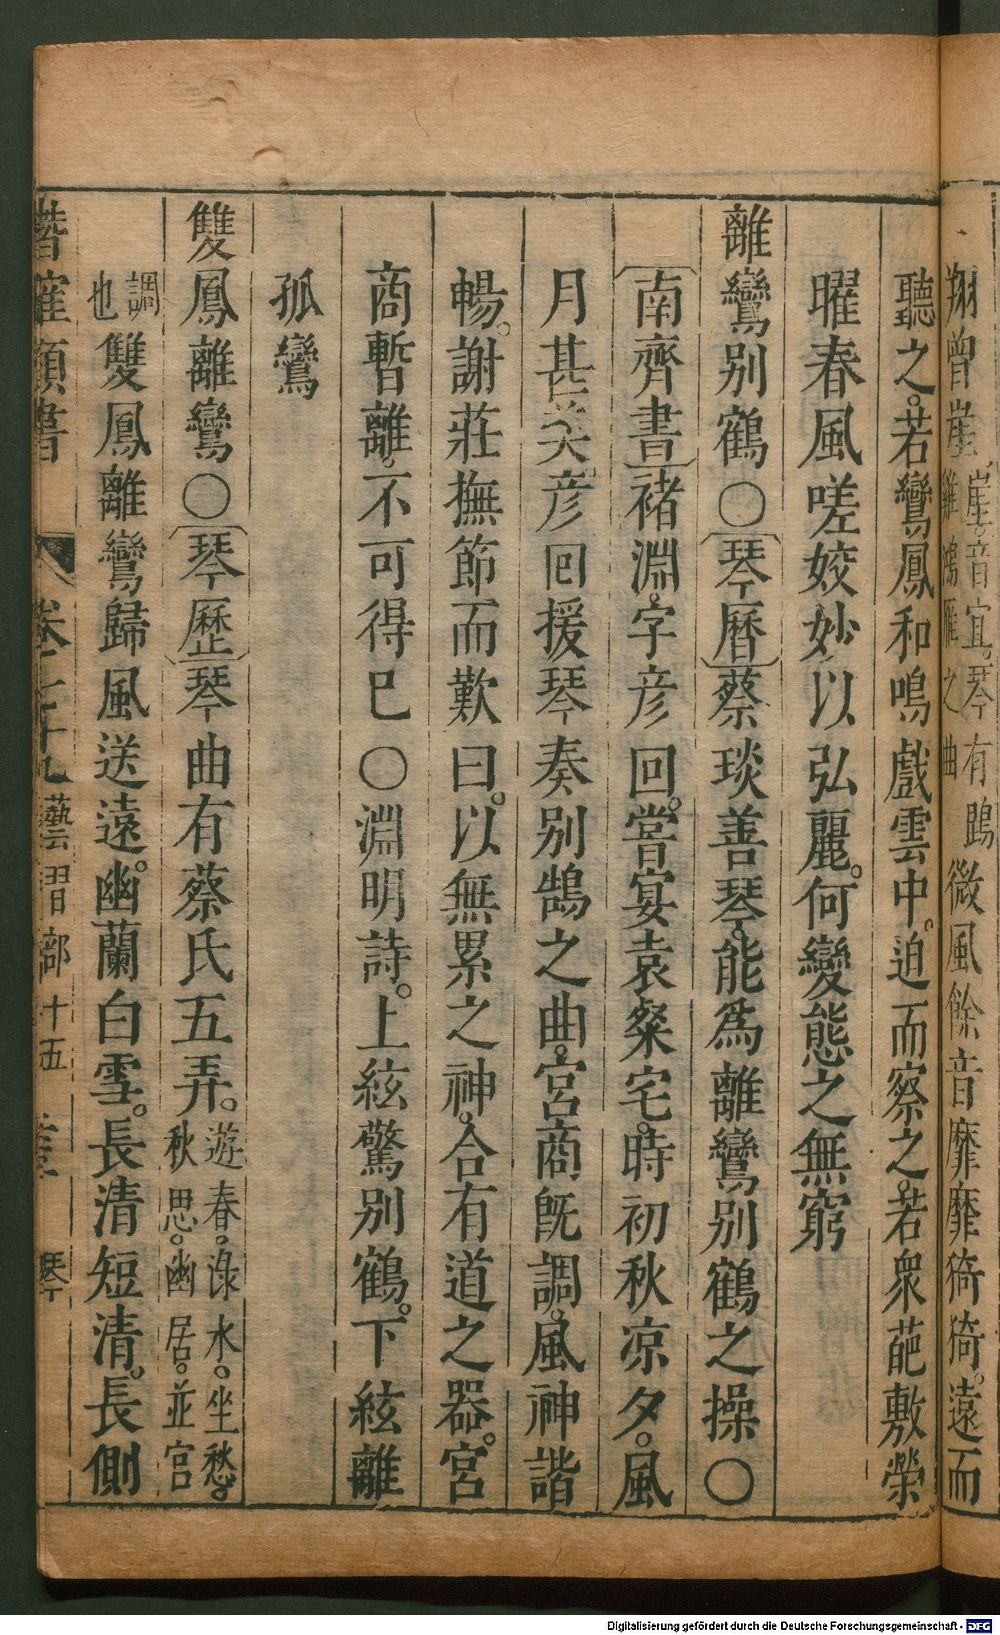 翔曾崖崖音宜琴有鵾雞鴻雁之曲微風餘音靡靡猗猗。遠而
聽之。若鸞鳳和鳴戲雲中。迫而察之。若衆葩敷榮
曜春風嗟姣妙以弘麗。何變態之無窮
離鸞别鶴〇〔琴曆〕蔡琰善琴。能爲離鸞别鶴之操〇
〔南齊書〕褚淵。字彦回。嘗宴袁粲宅。時初秋凉夕。風
月甚美。彦回援琴奏别鵠之曲。宮商旣調。風神諧
暢。謝莊撫節而歎曰。以無累之神。合有道之器。宮
商暫離。不可得巳〇淵明詩。上絃驚别鶴。下絃離
孤鸞
雙鳳離鸞〇〔琴歷〕琴曲有蔡氏五弄。遊春。淥水。坐愁。秋思。幽居。並宮
調也雙鳳離鸞歸風送遠。幽蘭白雪。長清短清。長側
卷七十九 藝習部十五 琴
Digitalisierung gefördert durch die Deutsche Forschungsgemeinschaft - DFG